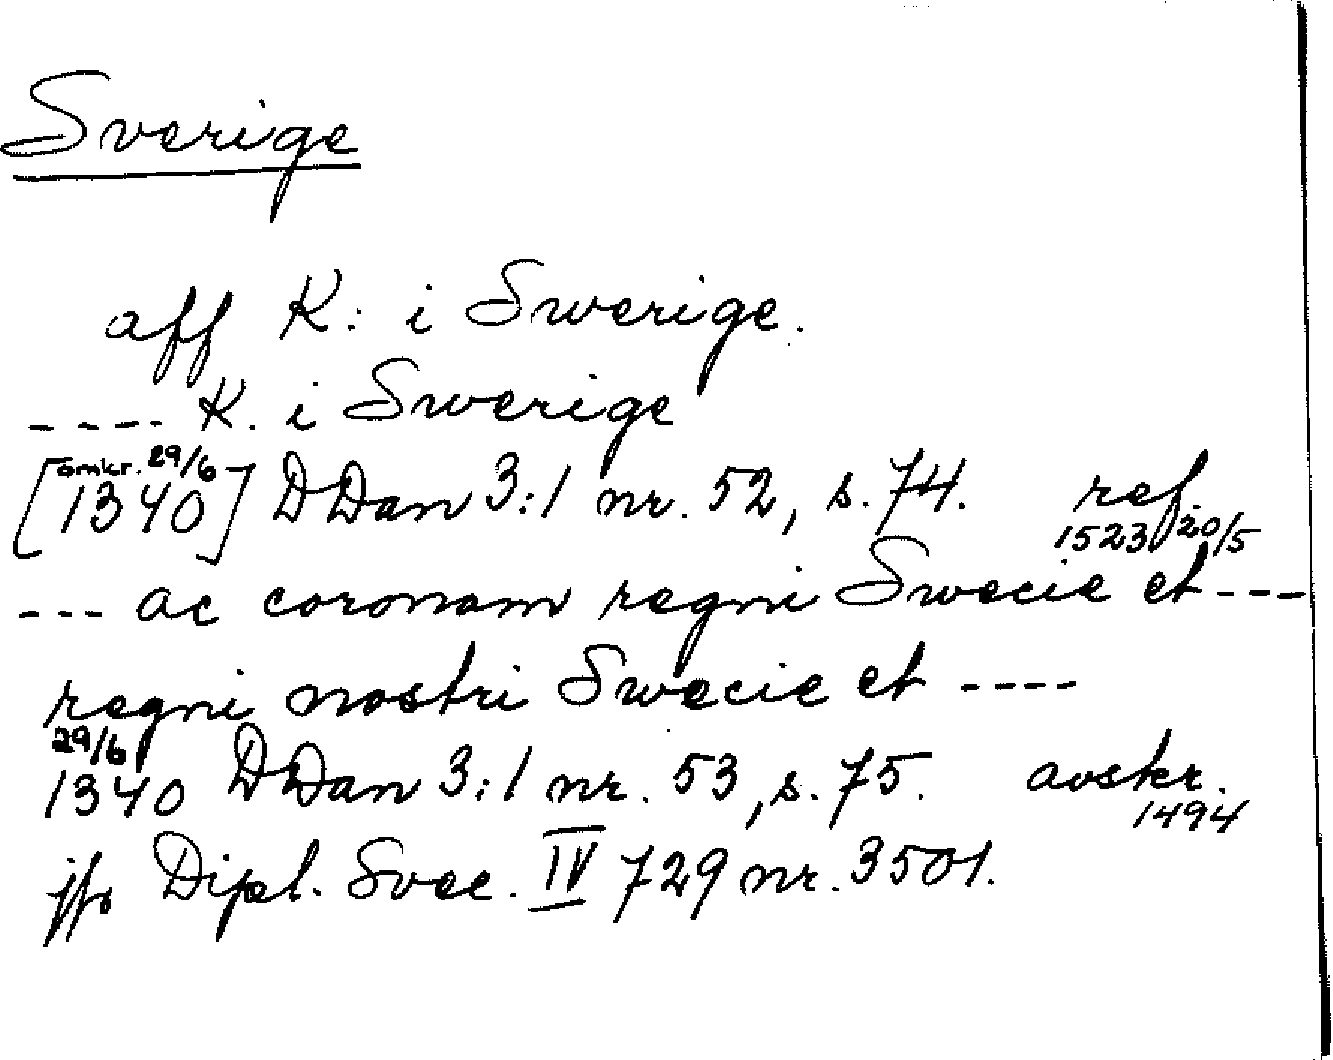 Sverige
aff K: i Swerige.
---- K. i Swerige
[omkr. 29/6 1340] DDan 3:1 nr. 52, s. 74. ref. 1523 20/5
--- ac coronam regni Swecie et ---
regni nostri Swecie et ----
29/6 1340 DDan 3:1 nr. 53, s. 75. avskr. 1494
jfr Dipl. Svec. IV 729 nr. 3501.